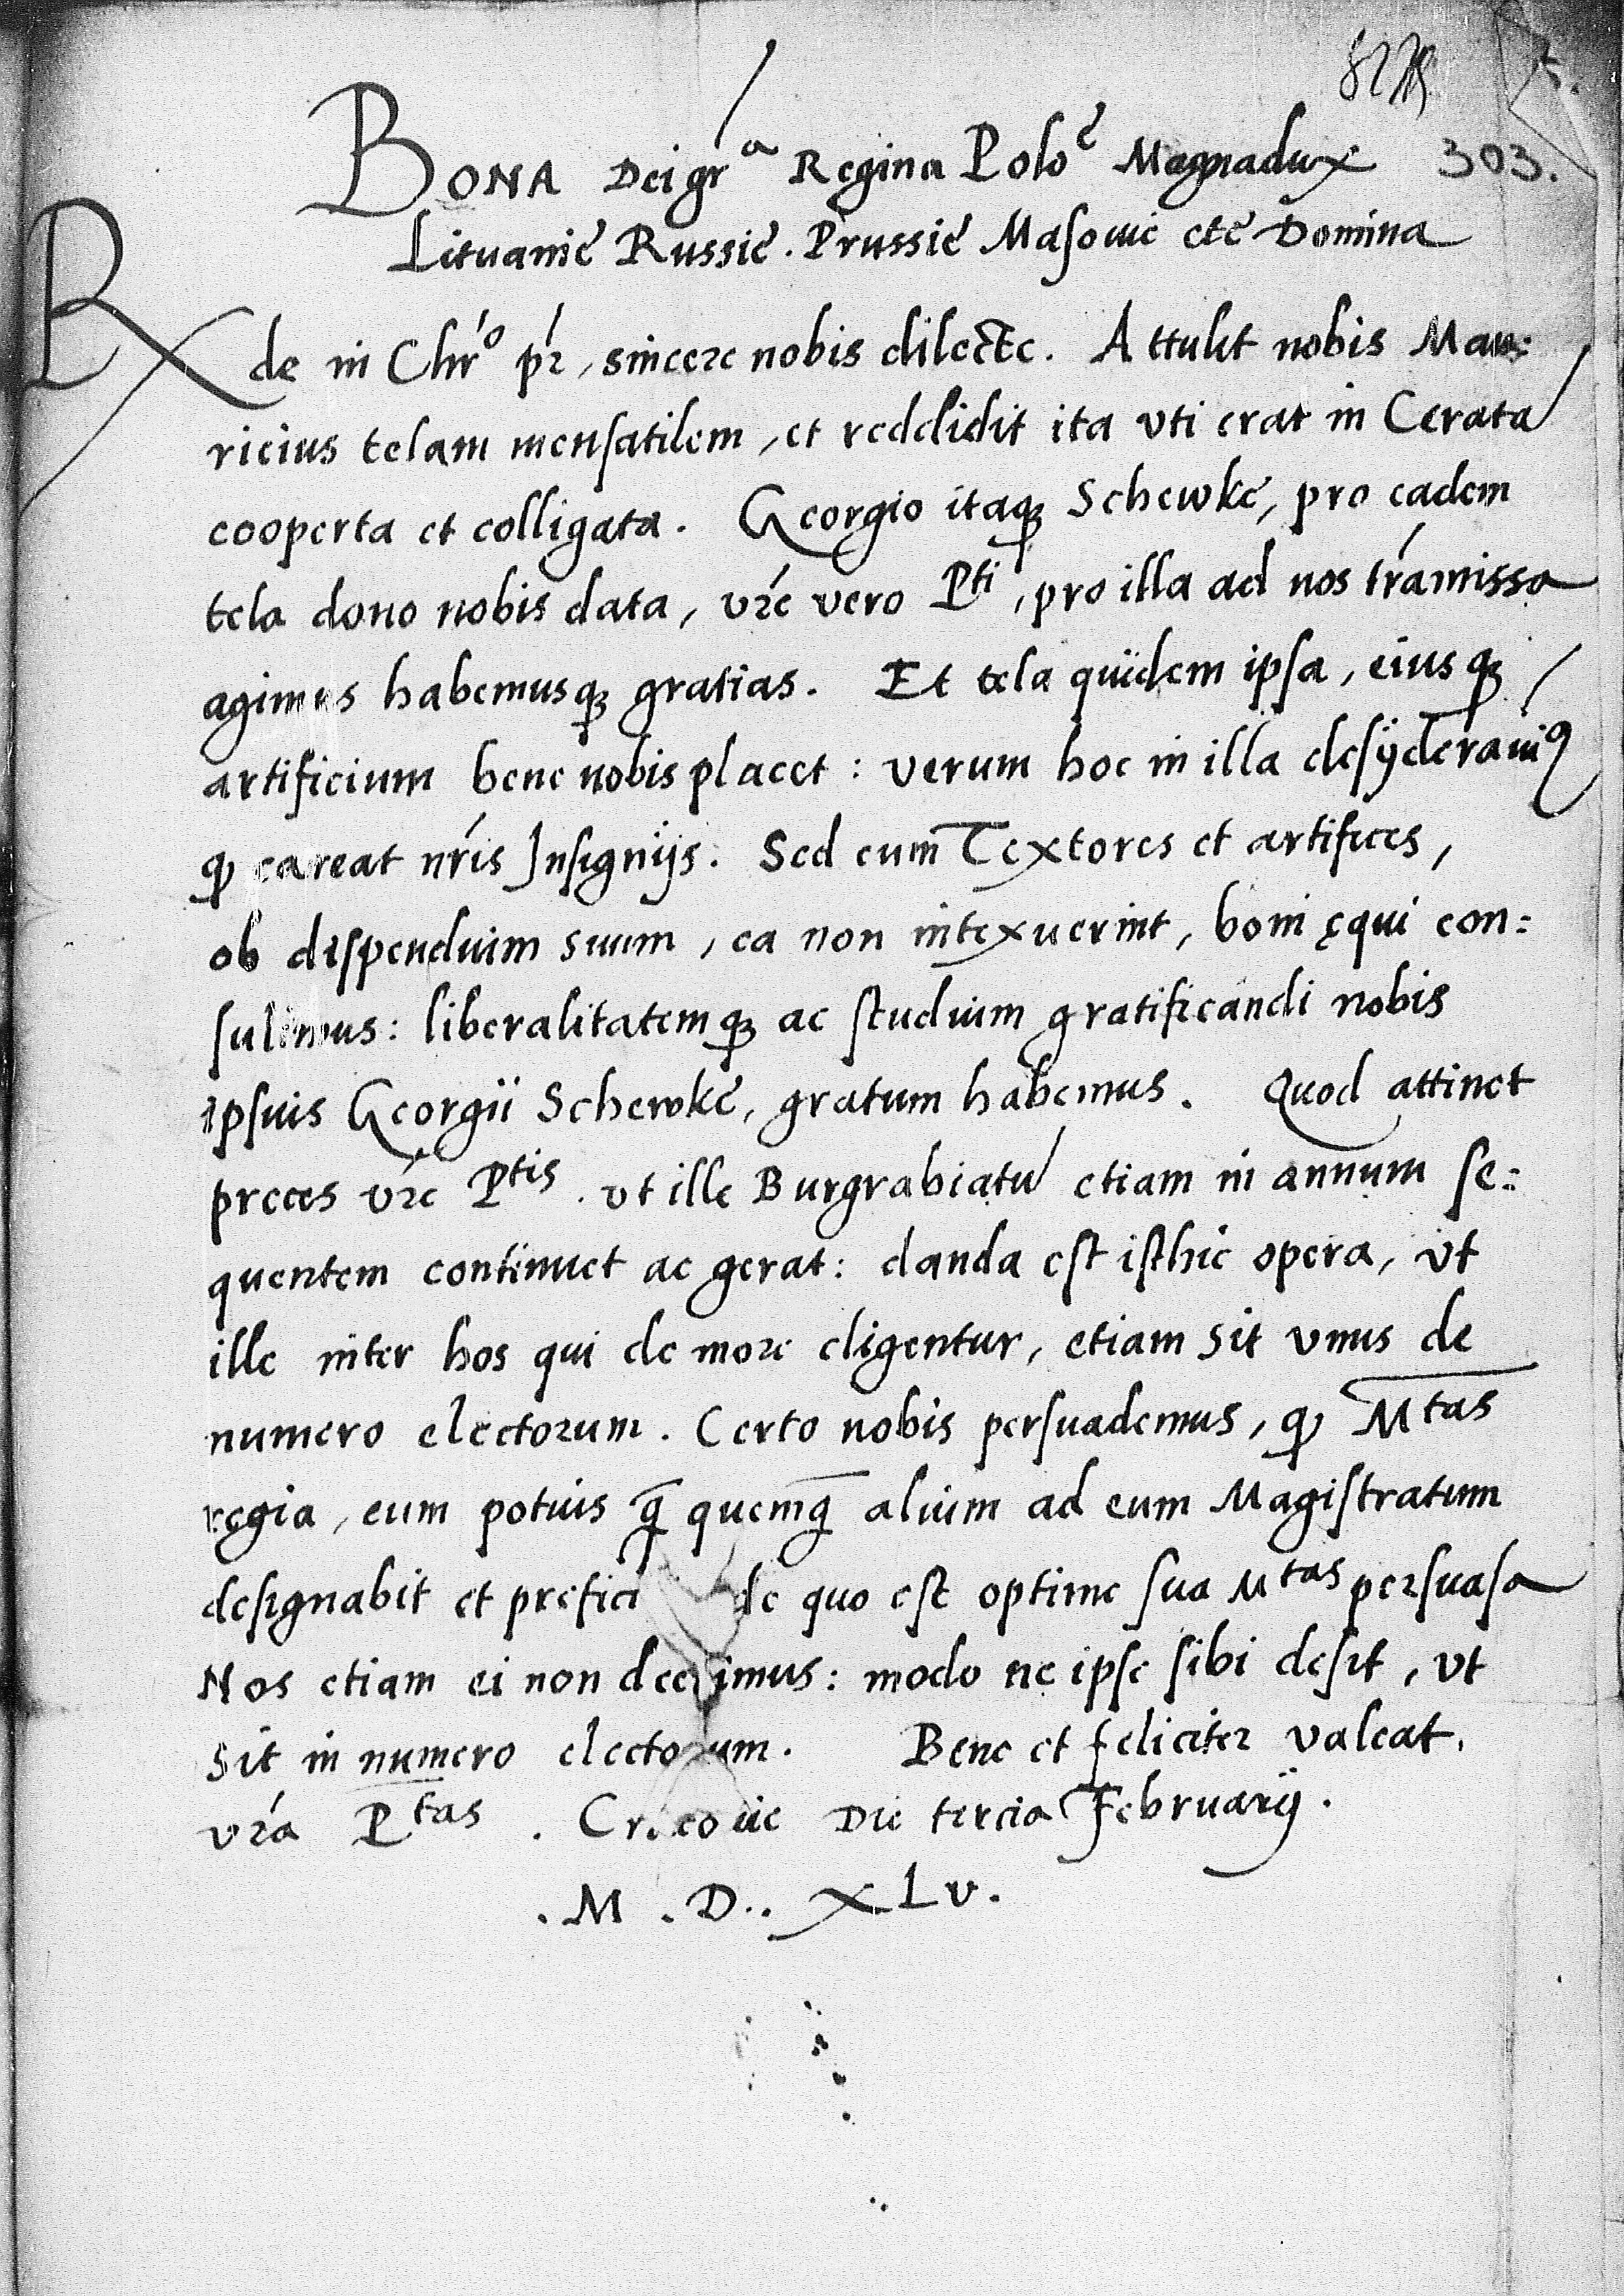 303.
BONA Dei gr̃a Regina Poloe Magnadux
Lituanie Russie. Prussie Masouie etc Domina
Rde in Chr̃o pr̃, sincere nobis dilecte. Attulit nobis Mau:
ricius telam mensatilem, et reddidit ita vti erat in Cerata
cooperta et colligata. Georgio itaqȝ Schewke, pro eadem
tela dono nobis data, vr̃e vero Pti, pro illa ad nos tr̃amissa
agimus habemusqȝ gratias. Et tela quidem ipsa, eiusqȝ
artificium bene nobis placet: verum hoc in illa desyderauiꝯ
ꝙ careat nr̃is Insignijs. Sed cum Textores et artifices,
ob dispendium suum, ea non intexuerint, boni ęqui con:
sulimus: liberalitatemqȝ ac studium gratificandi nobis
ipsius Georgii Schewke, gratum habemus. Quod attinet
preces vr̃e Ptis. vt ille Burgrabiatū etiam in annum se:
quentem continuet ac gerat: danda est isthic opera, vt
ille inter hos qui de more eligentur, etiam sit vnus de
numero electorum. Certo nobis persuademus, ꝙ Mtas
regia, eum potius q̃ quemq̃ alium ad eum Magistratum
designabit et prefici de quo est optime sua Mtas persuasa
Nos etiam ei non deerimus: modo ne ipse sibi desit, vt
sit in numero electorum. Bene et feliciter valeat.
vr̃a Ptas. Cracouie Die tercia Februarij.
.M.D.. XLv.